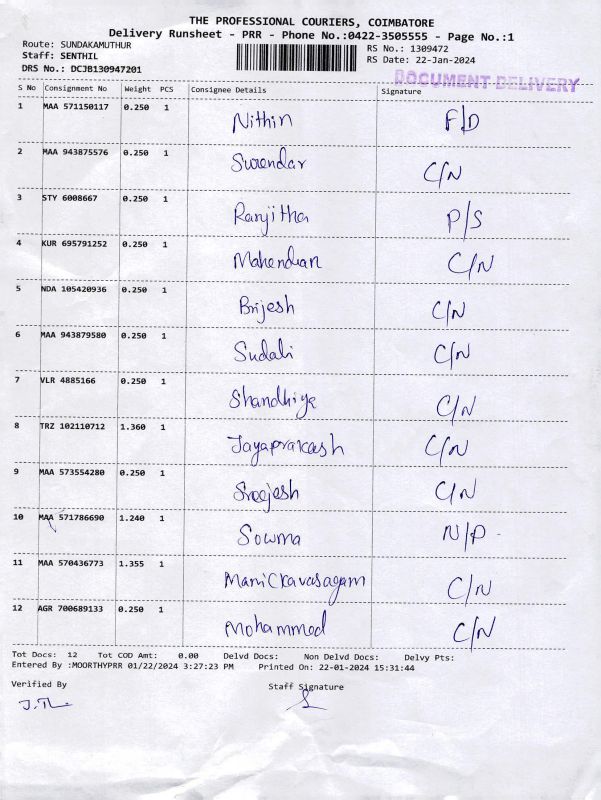 THE PROFESSIONAL COURIERS, COIMBATORE
Delivery Runsheet - PRR - Phone No.:0422-3505555 - Page No.:1
Route: SUNDAKAMUTHUR RS No.: 1309472
Staff: SENTHIL RS Date: 22-Jan-2024
DRS No.: DCJB130947201
DOCUMENT DELIVERY
S No Consignment No Weight PCS Consignee Details Signature
1 MAA 571150117 0.250 1 Nithin F/D
2 MAA 943875576 0.250 1 Surendar C/N
3 STY 6008667 0.250 1 Ranjitha P/S
4 KUR 695791252 0.250 1 Mahendran C/N
5 NDA 105420936 0.250 1 Brijesh C/N
6 MAA 943879580 0.250 1 Sudali C/N
7 VLR 4885166 0.250 1 Shandhiya C/N
8 TRZ 102110712 1.360 1 Jayaprakash C/N
9 MAA 573554280 0.250 1 Sreejesh C/N
10 MAA 571786690 1.240 1 Sowma N/P
11 MAA 570436773 1.355 1 Manickavasagam C/N
12 AGR 700689133 0.250 1 Mohammed C/N
Tot Docs: 12 Tot COD Amt: 0.00 Delvd Docs: Non Delvd Docs: Delvy Pts:
Entered By :MOORTHYPRR 01/22/2024 3:27:23 PM Printed On: 22-01-2024 15:31:44
Verified By Staff Signature